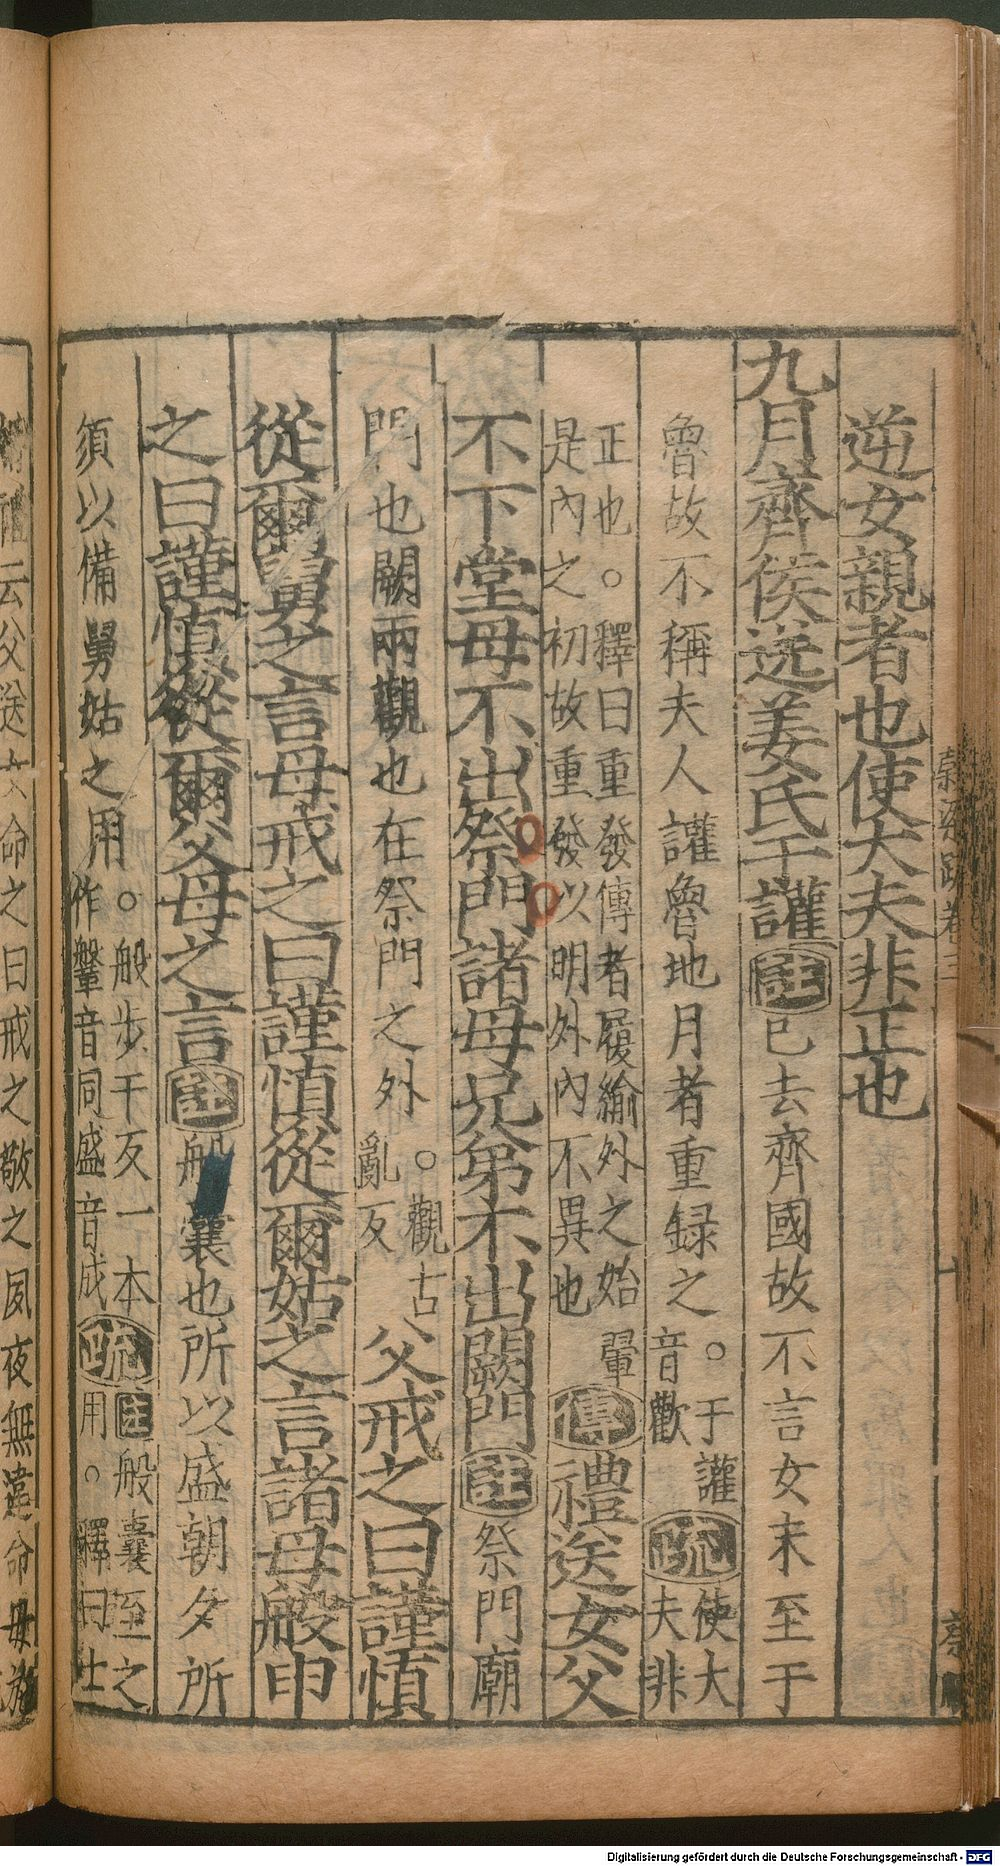 逆女親者也使大夫非正也
九月齊侯送姜氏于讙註已去齊國故不言女未至于
魯故不稱夫人讙魯地月者重録之。于讙
音歡疏使大
夫非
正也。釋曰重發傳者履緰外之始
是內之初故重發以明外內不異也翬傳禮送女父
不下堂母不出祭門諸母兄弟不出闕門註祭門廟
門也闕兩觀也在祭門之外。觀古
亂反父戒之曰謹慎
從爾舅之言母戒之曰謹慎從爾姑之言諸母般申
之曰謹慎從爾父母之言註般囊也所以盛朝夕所
須以備舅姑之用。般步干反一本
作鞶音同盛音成疏註般囊至之
用。釋曰士
穀梁疏卷三
十
云父送女命之曰戒之敬之夙夜無違命母施
Digitalisierung gefördert durch die Deutsche Forschungsgemeinschaft - DFG